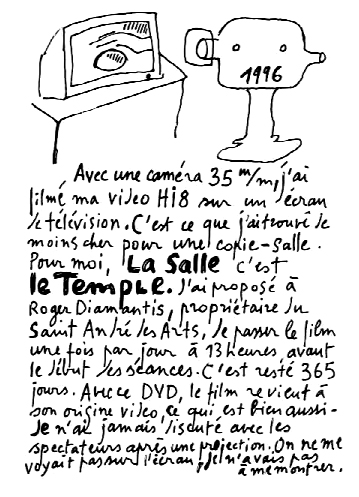 1996
Avec une caméra 35 m/m, j'ai
filmé ma video Hi8 sur un écran
de télévision. C'est ce que j'ai trouvé de
moins cher pour une copie-salle.
Pour moi, La Salle c'est
le Temple. J'ai proposé à
Roger Diamantis, propriétaire du
Saint André des Arts, de passer le film
une fois par jour à 13 heures, avant
le début des séances. C'est resté 365
jours. Avec ce DVD, le film revient à
son origine video, ce qui est bien aussi.
Je n'ai jamais discuté avec les
spectateurs après une projection. On ne me
voyait pas sur l'écran, je n'avais pas
à me montrer.